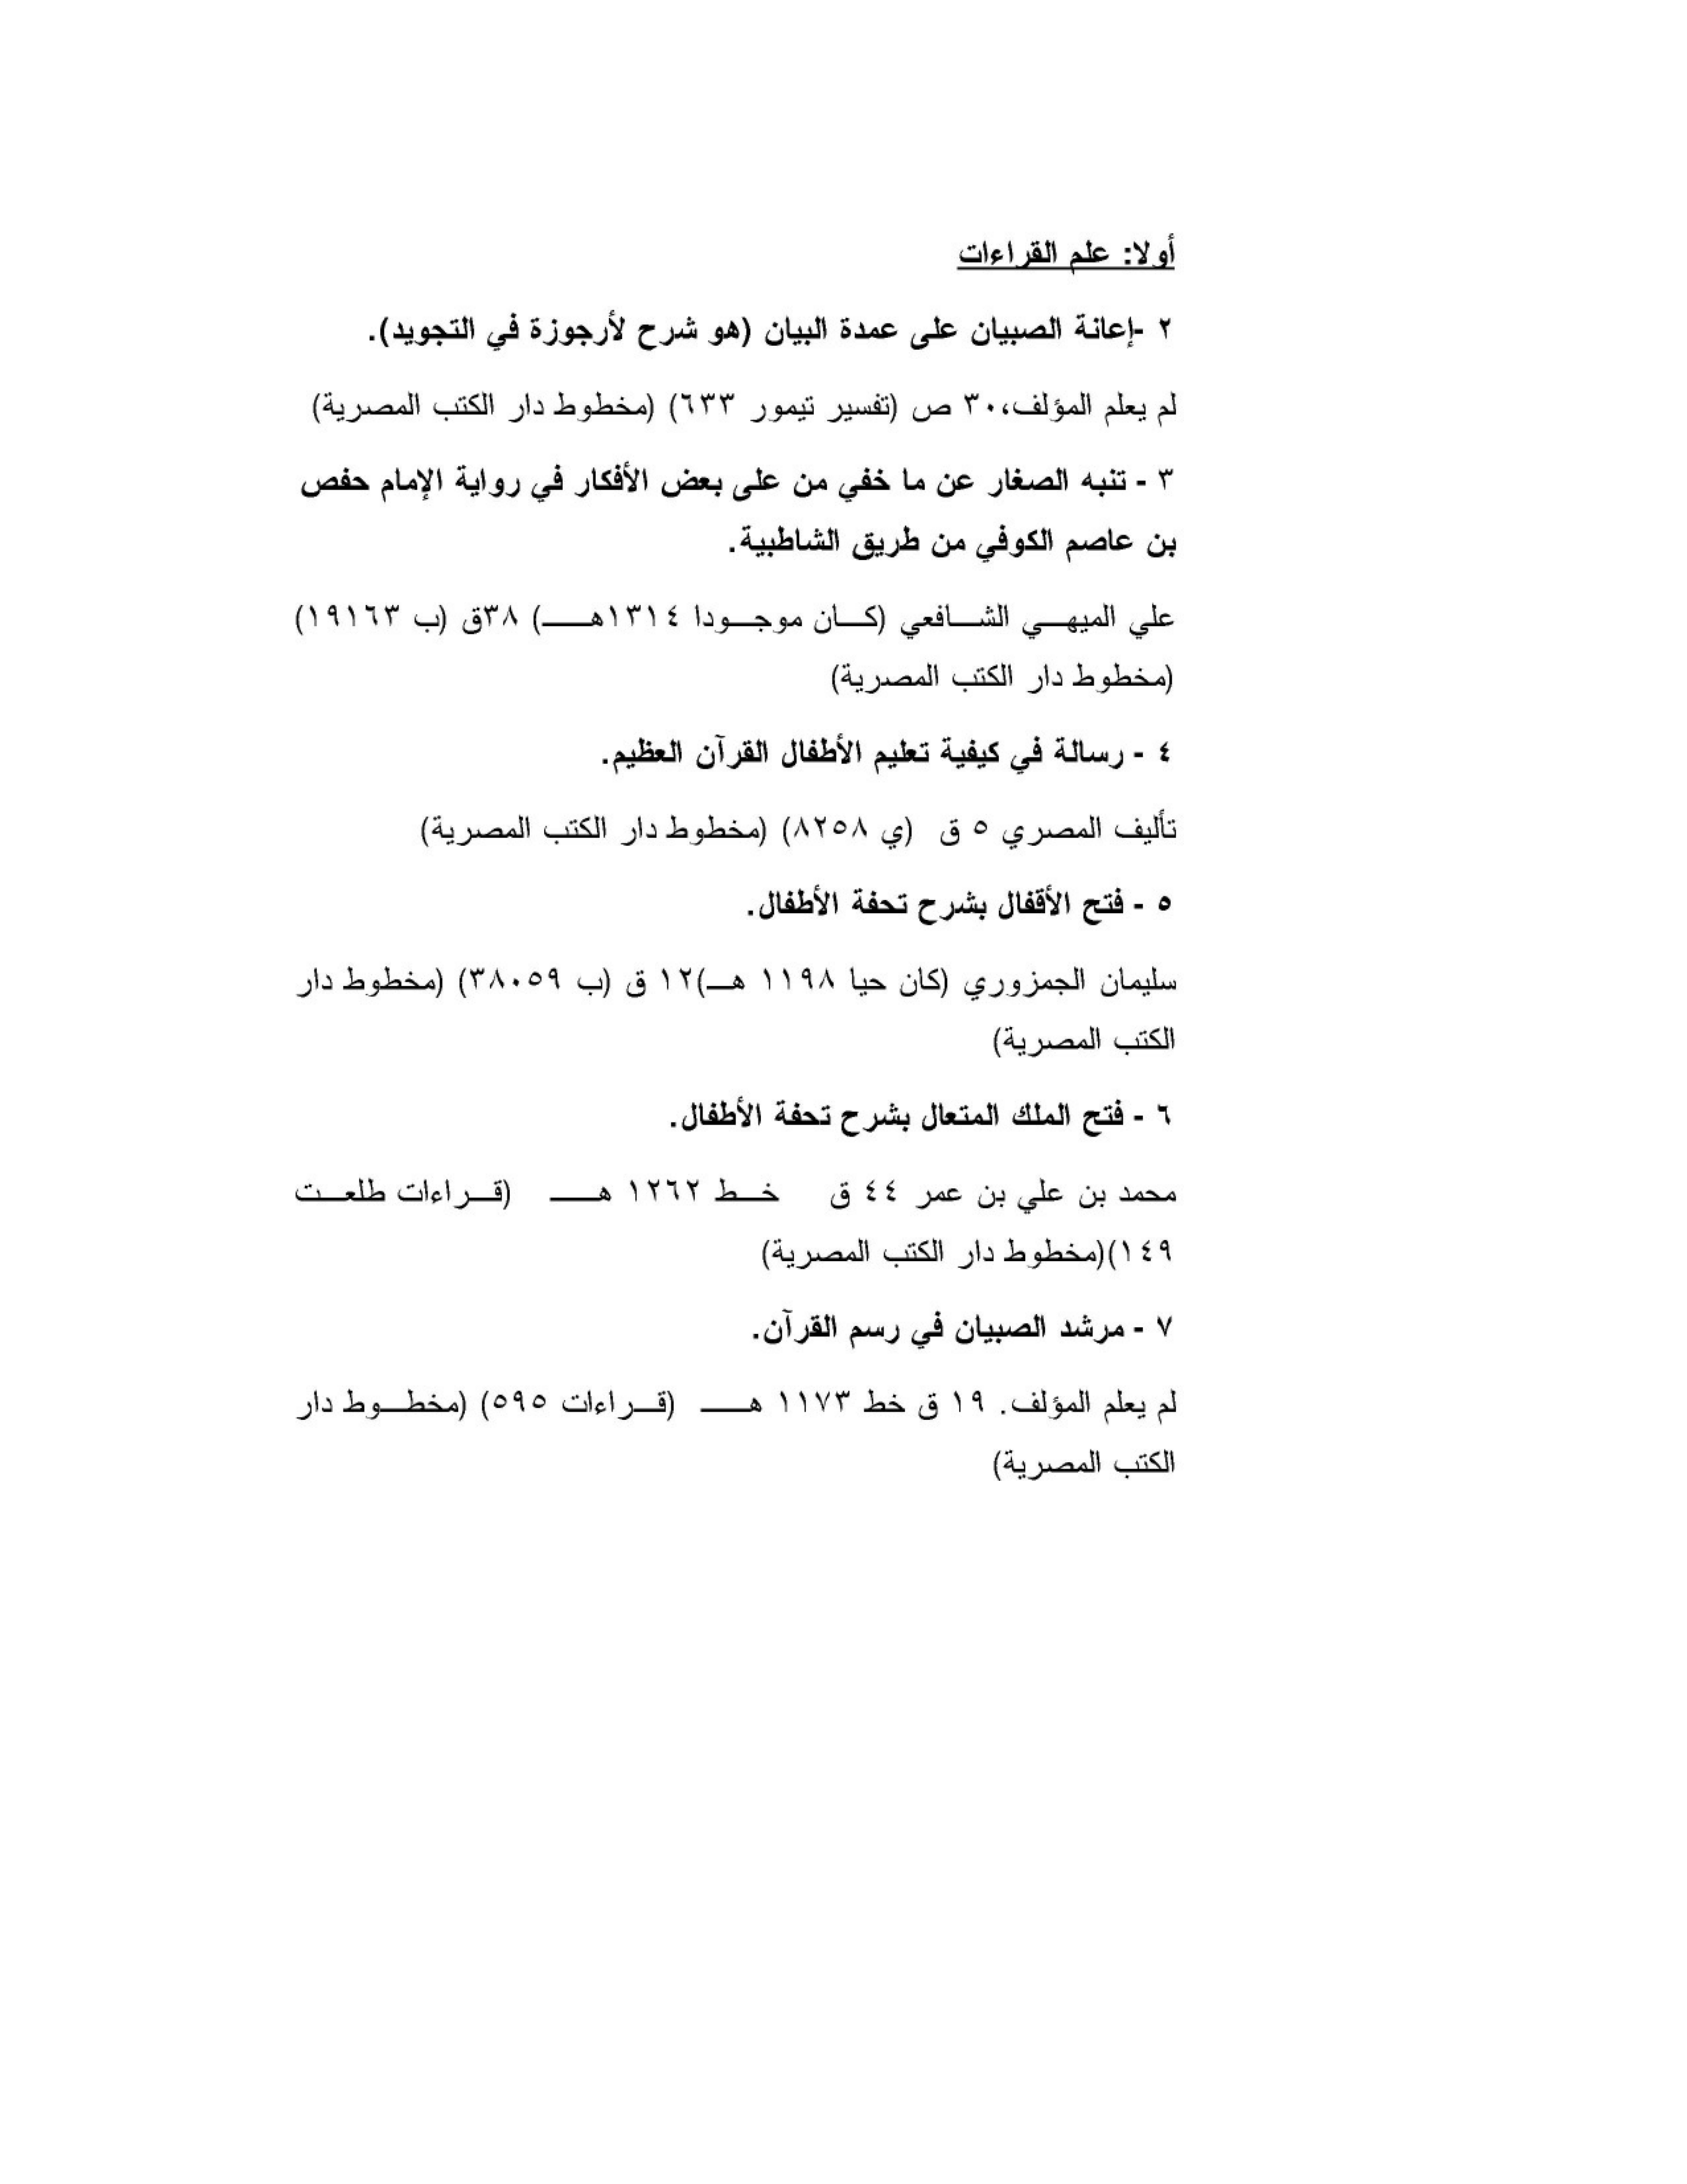 أولا: علم القراءات
٢ -إعانة الصبيان على عمدة البيان (هو شرح لأرجوزة في التجويد).
لم يعلم المؤلف،٣٠ ص (تفسير تيمور ٦٣٣) (مخطوط دار الكتب المصرية)
٣ - تنبه الصغار عن ما خفي من على بعض الأفكار في رواية الإمام حفص
بن عاصم الكوفي من طريق الشاطبية.
علي الميهــي الشــافعي (كــان موجــودا ١٣١٤هــــ) ٣٨ق (ب ١٩١٦٣)
(مخطوط دار الكتب المصرية)
٤ - رسالة في كيفية تعليم الأطفال القرآن العظيم.
تأليف المصري ٥ ق (ي ٨٢٥٨) (مخطوط دار الكتب المصرية)
٥ - فتح الأقفال بشرح تحفة الأطفال.
سليمان الجمزوري (كان حيا ١١٩٨ هـــ)١٢ ق (ب ٣٨٠٥٩) (مخطوط دار
الكتب المصرية)
٦ - فتح الملك المتعال بشرح تحفة الأطفال.
محمد بن علي بن عمر ٤٤ ق خــط ١٢٦٢ هــــ (قــراءات طلعــت
١٤٩)(مخطوط دار الكتب المصرية)
٧ - مرشد الصبيان في رسم القرآن.
لم يعلم المؤلف. ١٩ ق خط ١١٧٣ هــــ (قــراءات ٥٩٥) (مخطــوط دار
الكتب المصرية)